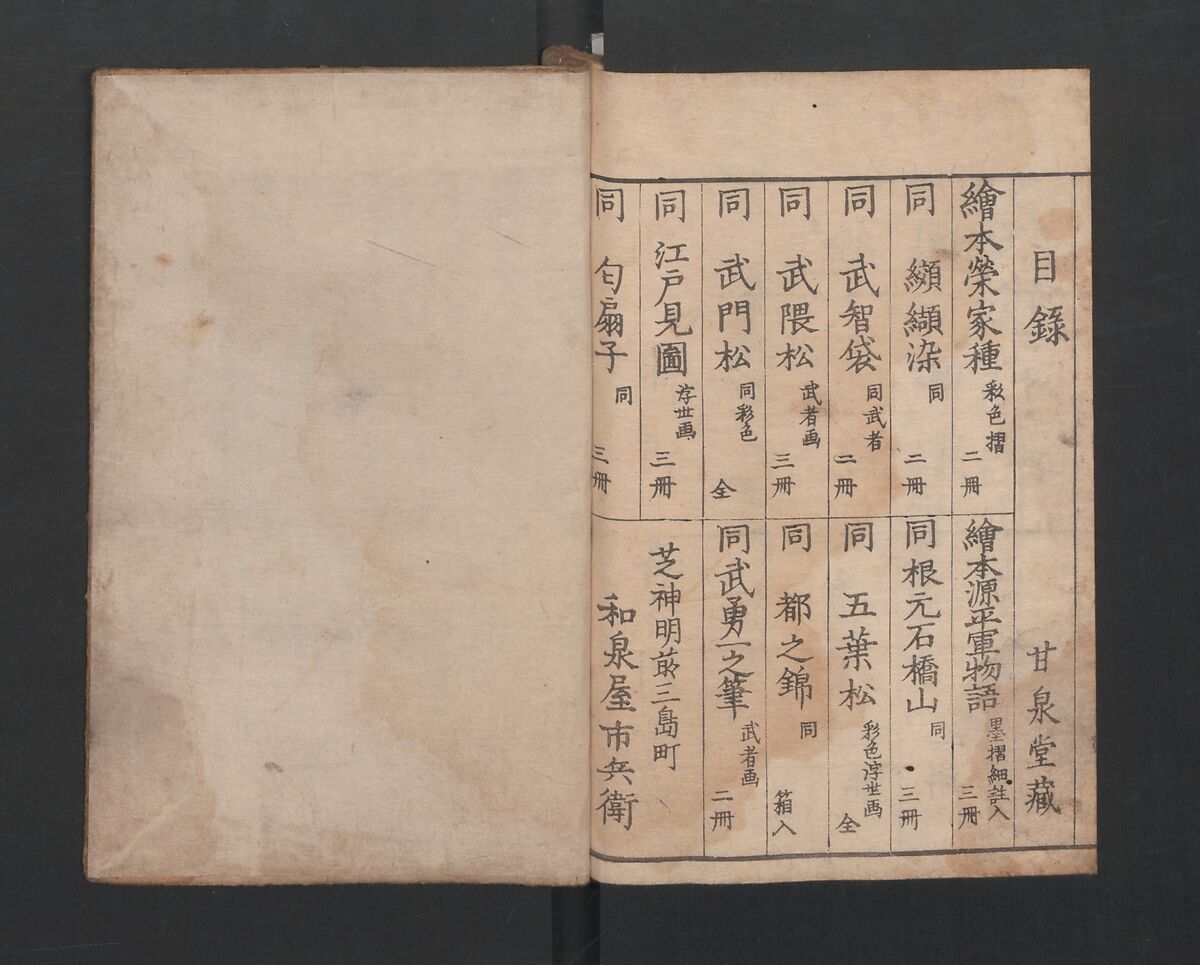 目錄 甘泉堂藏
繪本榮家種 彩色摺 二冊
同 纐纈染 同 二冊
同 武智袋 同武者 二冊
同 武隈松 武者画 三冊
同 武門松 同彩色 全
同 江戸見圖 浮世画 三冊
同 匂扇子 同 三冊
繪本源平軍物語 墨摺細註入 三冊
同 根元石橋山 同 三冊
同 五葉松 彩色浮世画 全
同 都之錦 同 箱入
同 武勇一之筆 武者画 二冊
芝神明前三島町
和泉屋市兵衛